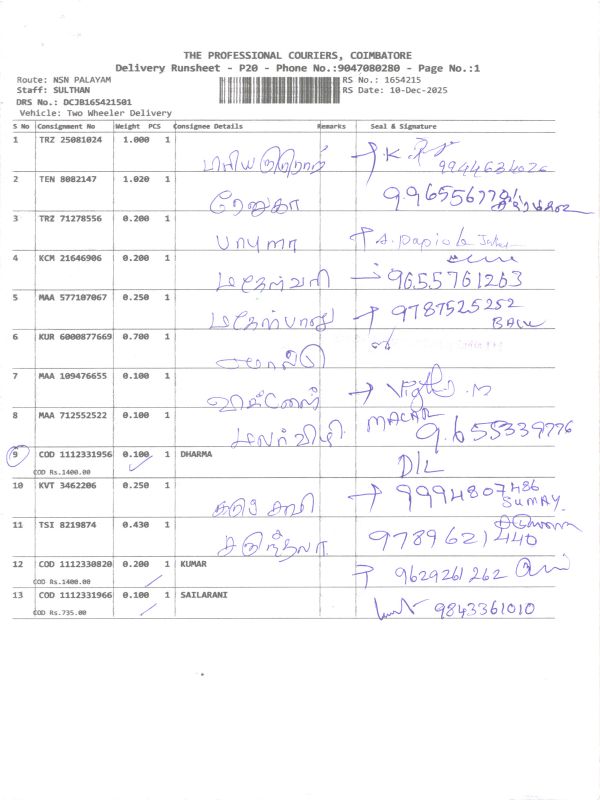 THE PROFESSIONAL COURIERS, COIMBATORE
Delivery Runsheet - P20 - Phone No.:9047080280 - Page No.:1
Route: NSN PALAYAM
RS No.: 1654215
Staff: SULTHAN
RS Date: 10-Dec-2025
DRS No.: DCJB165421501
Vehicle: Two Wheeler Delivery
S No Consignment No Weight PCS Consignee Details Remarks Seal & Signature
1 TRZ 25081024 1.000 1
2 TEN 8082147 1.020 1 ரேணுகா
3 TRZ 71278556 0.200 1 பாபுஜா
4 KCM 21646906 0.200 1 மகேஸ்வரி 9655761263
5 MAA 577107067 0.250 1 9787525252
BALU
6 KUR 6000877669 0.700 1
7 MAA 109476655 0.100 1 விக்னேஷ்
8 MAA 712552522 0.100 1 மலர்விழி 9655339776
9 COD 1112331956 0.100 1 DHARMA D/L
COD Rs.1400.00
10 KVT 3462206 0.250 1 9994807486
SUMAY
11 TSI 8219874 0.430 1 சகுந்தலா 9789621440
12 COD 1112330820 0.200 1 KUMAR 9629261262
COD Rs.1400.00
13 COD 1112331966 0.100 1 SAILARANI 9843361010
COD Rs.735.00